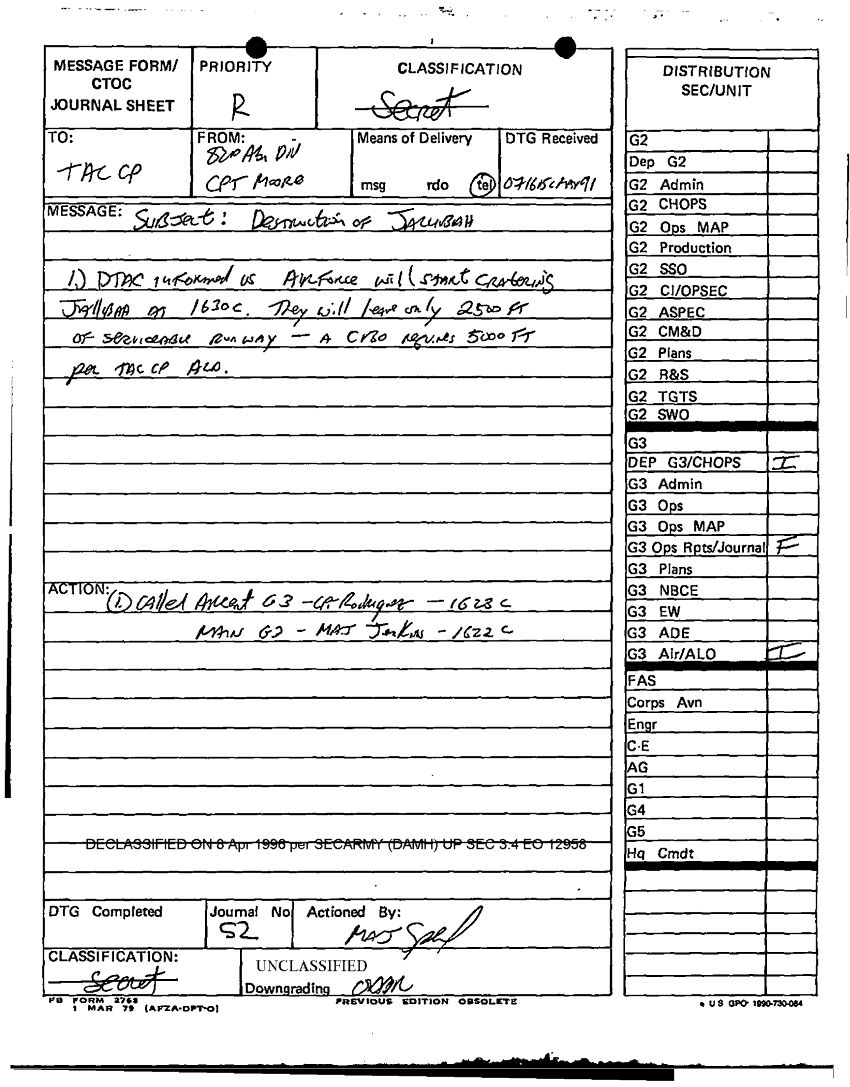 MESSAGE FORM/
CTOC
JOURNAL SHEET
PRIORITY
R
CLASSIFICATION
Secret
TO:
TAC CP
FROM:
82D Abn Div
CPT Moore
Means of Delivery
msg rdo tel
DTG Received
071615CMAR91
MESSAGE: Subject: Destruction of Jallibah
1.) DTAC informed us Air Force will start cratering
Jallibah at 1630c. They will leave only 2500 FT
of serviceable runway — A C130 requires 5000 FT
per TAC CP ALO.
ACTION: (1.) Called Arcent G3 - Cpt Rodriguez — 1623 C
MAIN G2 - MAJ Jenkins - 1622 C
DECLASSIFIED ON 8 Apr 1996 per SECARMY (DAMH) UP SEC 3.4 EO 12958
DTG Completed
Journal No
52
Actioned By:
MAJ
CLASSIFICATION:
Secret
UNCLASSIFIED
Downgrading OADR
FB FORM 2768
1 MAR 79 (AFZA-DPT-O)
PREVIOUS EDITION OBSOLETE
DISTRIBUTION
SEC/UNIT
G2
Dep G2
G2 Admin
G2 CHOPS
G2 Ops MAP
G2 Production
G2 SSO
G2 CI/OPSEC
G2 ASPEC
G2 CM&D
G2 Plans
G2 R&S
G2 TGTS
G2 SWO
G3
DEP G3/CHOPS I
G3 Admin
G3 Ops
G3 Ops MAP
G3 Ops Rpts/Journal F
G3 Plans
G3 NBCE
G3 EW
G3 ADE
G3 Air/ALO I
FAS
Corps Avn
Engr
C-E
AG
G1
G4
G5
Hq Cmdt
U S GPO 1990-730-064